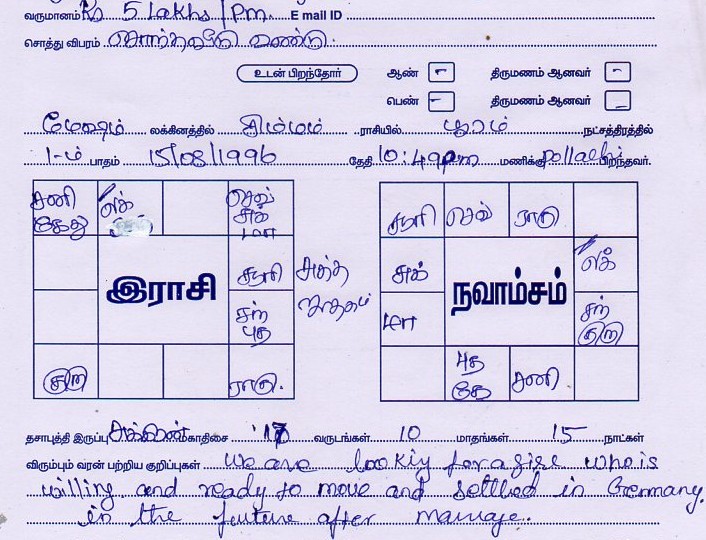 வருமானம் Rs 5 Lakhs/Pm. E mail ID
சொத்து விபரம் சொந்தவீடு உண்டு.
உடன் பிறந்தோர் ஆண் - திருமணம் ஆனவர் -
பெண் - திருமணம் ஆனவர் -
மேஷம் லக்கினத்தில் சிம்மம் ராசியில் பூரம் நட்சத்திரத்தில்
1-ம் பாதம் 15/08/1996 தேதி 10:49pm மணிக்கு pollachi பிறந்தவர்.
சனி கேது
லக்
செவ் சுக் மா
சூரி
சுத்த ஜாதகம்
இராசி
சந் புத
குரு
ராகு.
சூரி செவ் ராகு
சுக்
லக்
நவாம்சம்
மா
சந் குரு
புத கே
சனி
தசாபுத்தி இருப்பு சுக்கிரன் மகாதிசை 17 வருடங்கள் 10 மாதங்கள் 15 நாட்கள்
விரும்பும் வரன் பற்றிய குறிப்புகள் we are lookiy for a girl who is
willing and ready to move and settled in Germany.
in the future after marriage.